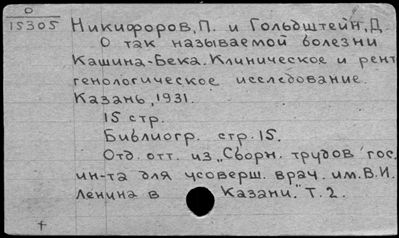 О
15305
Никифоров, П. и Гольдштейн, Д.
О так называемой болезни
Кашина-Бека. Клиническое и рент
генологическое исследование.
Казань, 1931.
15 стр.
Библиогр. стр. 15.
Отд. отт. из „Сборн. трудов гос.
ин-та для усоверш. врач. им. В.И.
Ленина в Казани." Т. 2.